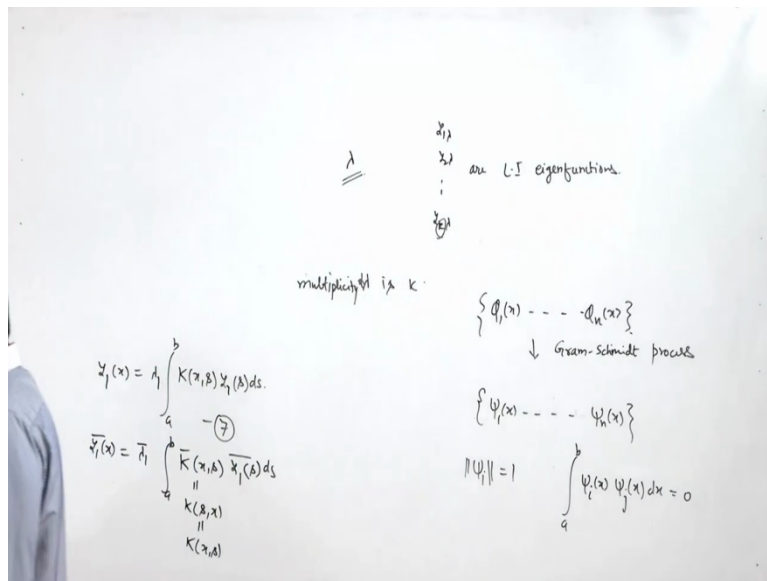 λ
y₁λ
y₂λ
⋮
yₖλ
are L.I eigenfunctions.
multiplicity of is K.
{φ₁(x) - - - - φₙ(x)}
↓ Gram-Schmidt process
{ψ₁(x) - - - - ψₙ(x)}
||ψᵢ|| = 1
∫ₐᵇ ψᵢ(x) ψⱼ(x) dx = 0
y₁(x) = λ₁ ∫ₐᵇ K(x,s) y₁(s) ds.
- ⑦
y̅₁(x) = λ̅₁ ∫ₐᵇ K̅(x,s) y̅₁(s) ds
||
K(s,x)
||
K(x,s)